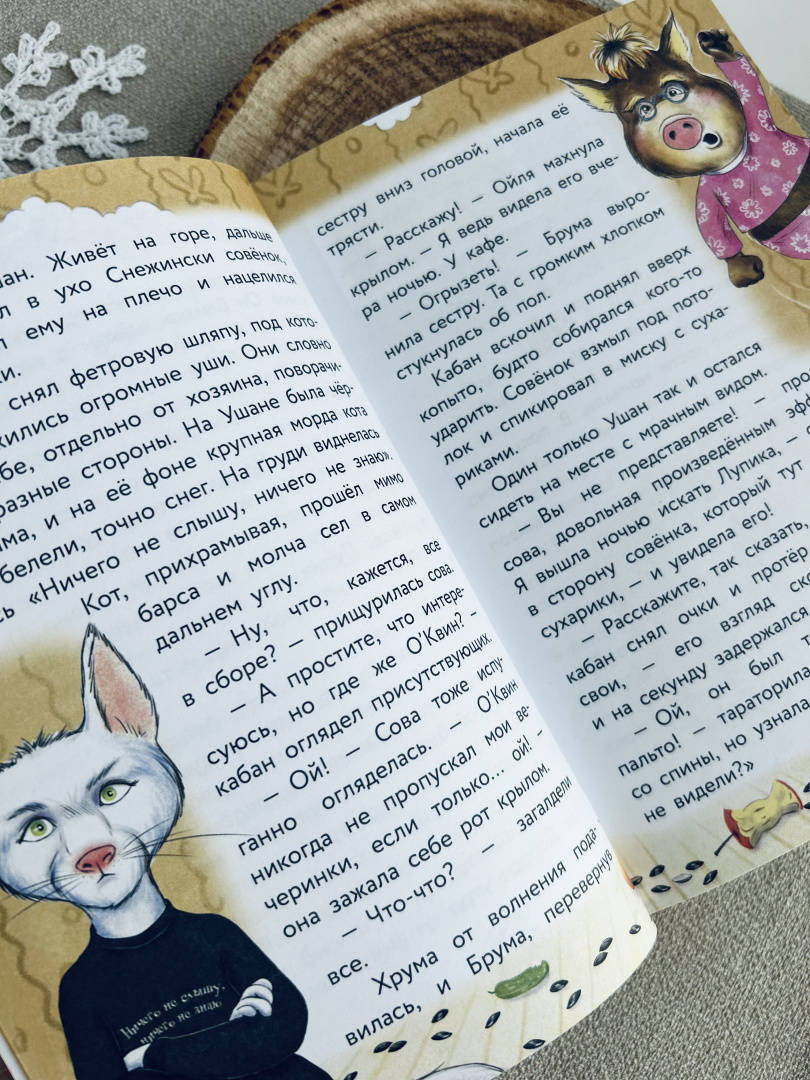 Живёт на горе, дальше
в ухо Снежински совёнок,
ему на плечо и нацелился
снял фетровую шляпу, под кото-
огромные уши. Они словно
отдельно от хозяина, поворачи-
разные стороны. На Ушане была чёр-
и на её фоне крупная морда кота
белели, точно снег. На груди виднелась
«Ничего не слышу, ничего не знаю».
Кот, прихрамывая, прошёл мимо
барса и молча сел в самом
дальнем углу.
– Ну, что, кажется, все
в сборе? – прищурилась сова.
– А простите, что интере-
суюсь, но где же О’Квин? –
кабан оглядел присутствующих.
– Ой! – Сова тоже испу-
ганно огляделась. – О’Квин
никогда не пропускал мои ве-
черинки, если только... ой! –
она зажала себе рот крылом.
– Что-что? – загалдели
все.
Хрума от волнения пода-
вилась, и Брума, перевернув
Ничего не слышу,
ничего не знаю
сестру вниз головой, начала её
трясти.
– Расскажу! – Ойля махнула
крылом. – Я ведь видела его вче-
ра ночью. У кафе.
– Огрызеть! – Брума выро-
нила сестру. Та с громким хлопком
стукнулась об пол.
Кабан вскочил и поднял вверх
копыто, будто собирался кого-то
ударить. Совёнок взмыл под пото-
лок и спикировал в миску с суха-
риками.
Один только Ушан так и остался
сидеть на месте с мрачным видом.
– Вы не представляете! –
сова, довольная произведённым
Я вышла ночью искать Лупика, –
в сторону совёнка, который тут
сухарики, – и увидела его!
– Расскажите, так сказать,
кабан снял очки и протёр
свои, – его взгляд
и на секунду задержался
– Ой, он был
пальто! – тараторила
со спины, но узнала
не видели?»